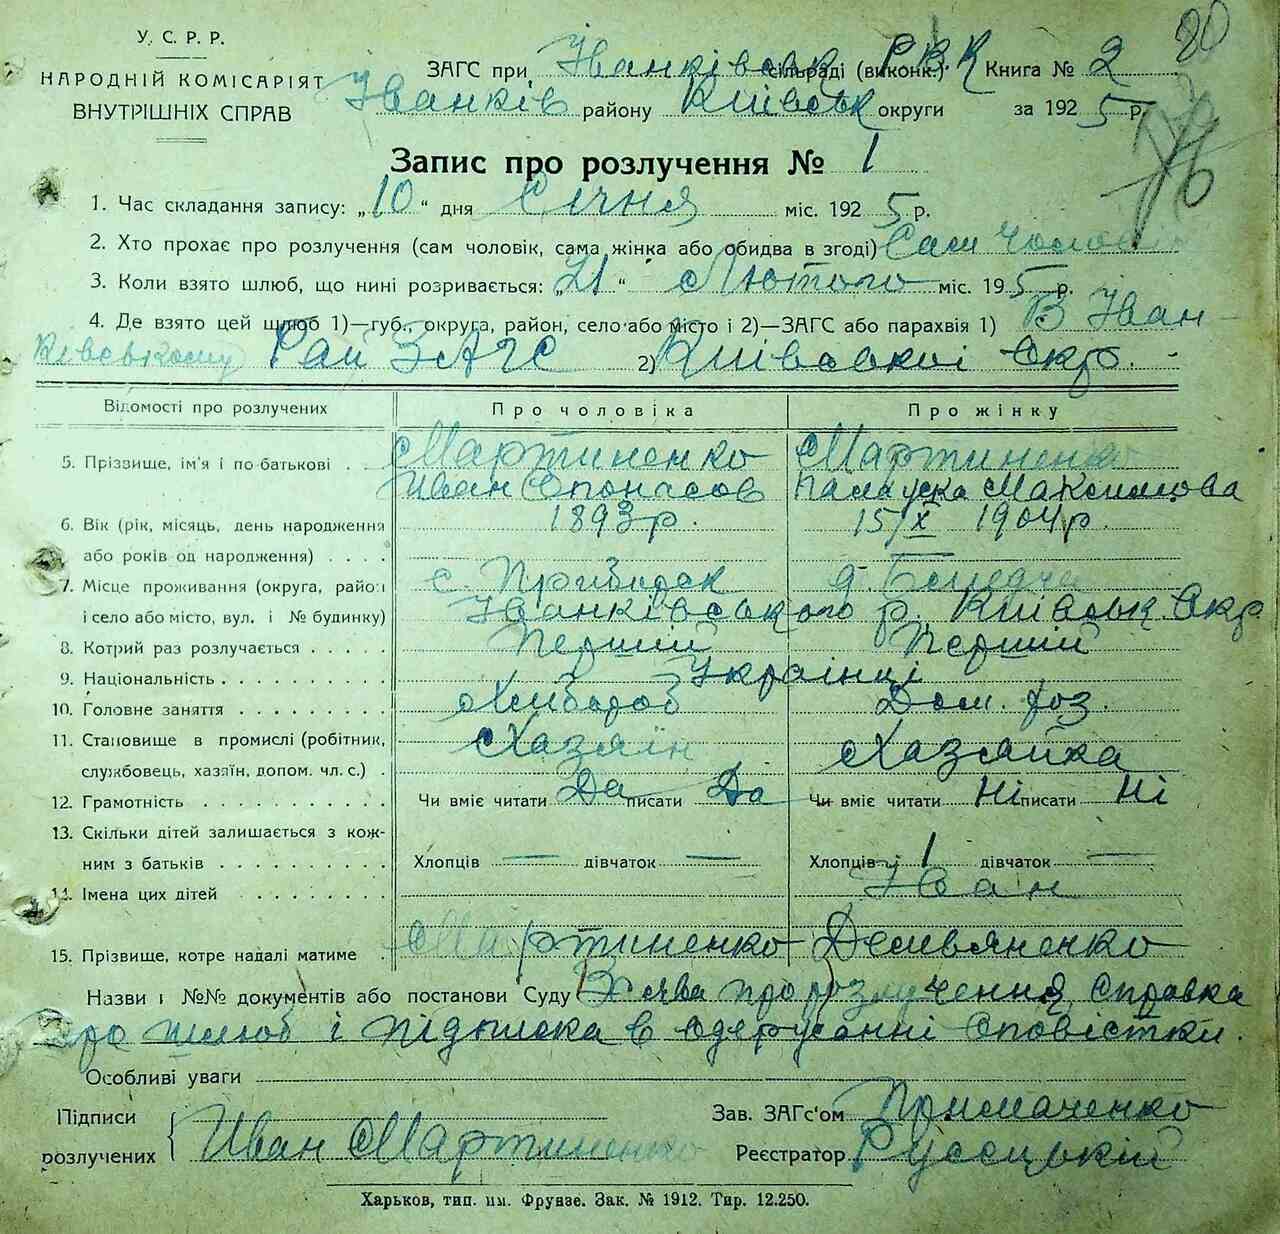 У. С. Р. Р.
НАРОДНІЙ КОМІСАРІЯТ
ВНУТРІШНІХ СПРАВ
80
ЗАГС при Іванківськ РВК сільраді (виконк.) Книга № 2
Іванків району Київськ округи за 1925 р.
Запис про розлучення № 1
1. Час складання запису: „10“ дня Січня міс. 1925 р.
2. Хто прохає про розлучення (сам чоловік, сама жінка або обидва в згоді) Сам Чоловік
3. Коли взято шлюб, що нині розривається: „21“ Лютого міс. 195 р.
4. Де взято цей шлюб 1)—губ., округа, район, село або місто і 2)—ЗАГС або парахвія 1) В Іван-
ківському Рай ЗАГС 2) Київської Окр.
Відомості про розлучених Про чоловіка Про жінку
5. Прізвище, ім'я і по батькові Мартиненко Мартиненко
Иван Опонасов Максимова
6. Вік (рік, місяць, день народження 1893 р. 15/X 1904 р.
або років од народження)
7. Місце проживання (округа, район с. Прибирск д.
і село або місто, вул. і № будинку) Іванківського р. Київськ. Окр.
8. Котрий раз розлучається Перший Перший
9. Національність Українці
10. Головне заняття Хлібороб Дом. хоз.
11. Становище в промислі (робітник, Хазяїн Хазяйка
службовець, хазяїн, допом. чл. с.)
12. Грамотність Чи вміє читати Да писати Да Чи вміє читати Ні писати Ні
13. Скільки дітей залишається з кож-
ним з батьків Хлопців — дівчаток — Хлопців 1 дівчаток —
14. Імена цих дітей Іван
15. Прізвище, котре надалі матиме Мартиненко Демьяненко
Назви і №№ документів або постанови Суду Заява про розлучення, Справка
про шлюб і підписка в одержанні Сповістки.
Особливі уваги
Підписи Зав. ЗАГс'ом Примаченко
розлучених Иван Мартиненко Реєстратор Руссцький
Харьков, тип. им. Фрунзе. Зак. № 1912. Тир. 12.250.